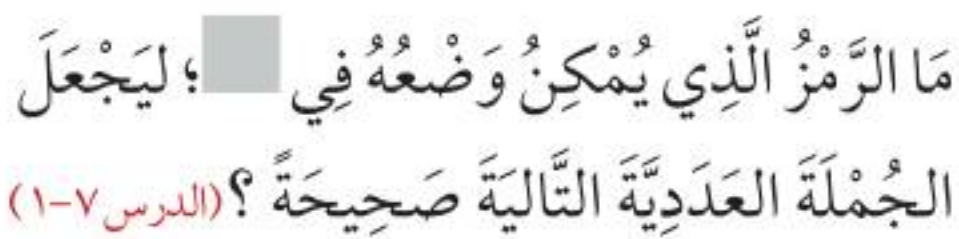 مَا الرَّمْزُ الَّذِي يُمْكِنُ وَضْعُهُ فِي ؛ ليَجْعَلَ
الجُمْلَةَ العَدَدِيَّةَ التَّاليَةَ صَحِيحَةً ؟ (الدرس ٧-١)